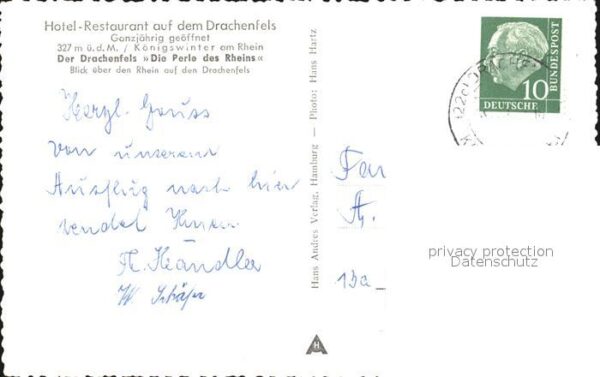 Hotel-Restaurant auf dem Drachenfels
Ganzjährig geöffnet
327 m ü.d.M. / Königswinter am Rhein
Der Drachenfels »Die Perle des Rheins«
Blick über den Rhein auf den Drachenfels
Herzl. Gruss
von unserem
Ausflug nach hier
sendet Ihnen
H. Händler
W. Schäfer
Hans Andres Verlag, Hamburg — Photo: Hans Hartz
A H
10
DEUTSCHE
BUNDESPOST
(22c) DRACHE
Fa
A.
privacy protection
Datenschutz